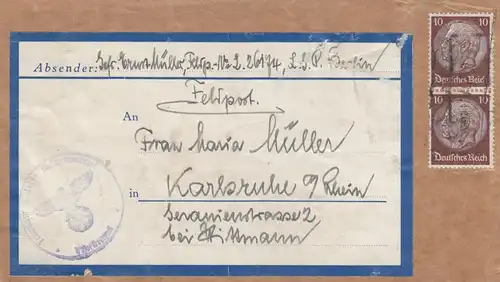 Absender: Gefr. Ernst Müller, Feldp.-Nr. L. 26174, L.G.P. Berlin
Feldpost.
An
Frau Maria Müller
in Karlsruhe a/Rhein
Geranienstrasse 2
bei Wittmann
10 10
Deutsches Reich
10 10
Deutsches Reich